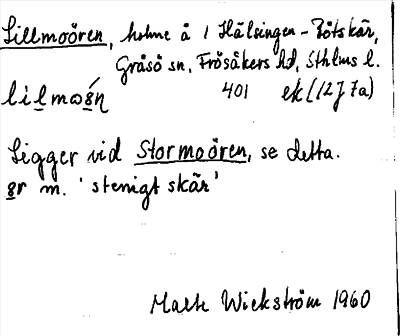 Lillmoören, holme å 1 Hälsingen - Rötskär,
Gräsö sn, Frösåkers hd, Sthlms l.
lilmoǝ́n 401 ek (12J 7a)
Ligger vid Stormoören, se detta.
ǝr m. 'stenigt skär'
Malte Wickström 1960